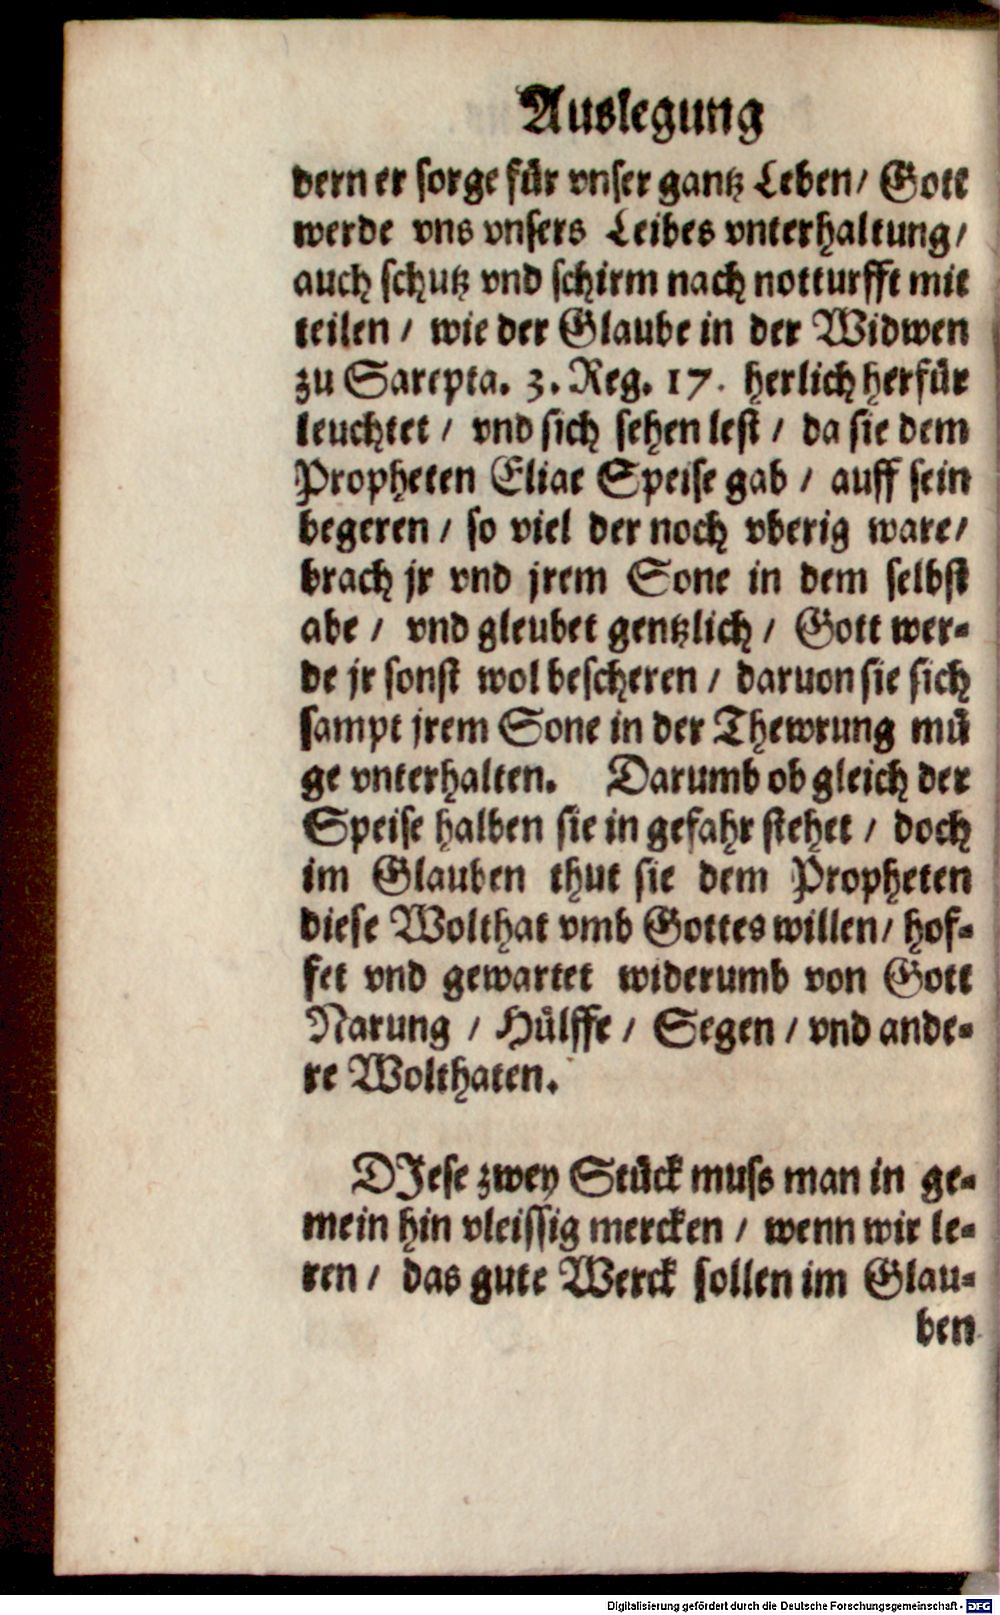 Auslegung
dern er sorge für vnser gantz Leben/ Gott
werde vns vnsers Leibes vnterhaltung/
auch schutz vnd schirm nach notturfft mit
teilen / wie der Glaube in der Widwen
zu Sarepta. 3. Reg. 17. herlich herfür
leuchtet / vnd sich sehen lest / da sie dem
Propheten Eliae Speise gab / auff sein
begeren / so viel der noch vberig ware/
brach jr vnd jrem Sone in dem selbst
abe / vnd gleubet gentzlich / Gott wer-
de jr sonst wol bescheren / daruon sie sich
sampt jrem Sone in der Thewrung mü
ge vnterhalten. Darumb ob gleich der
Speise halben sie in gefahr stehet / doch
im Glauben thut sie dem Propheten
diese Wolthat vmb Gottes willen/ hof-
fet vnd gewartet widerumb von Gott
Narung / Hülffe / Segen / vnd ande-
re Wolthaten.
DJese zwey Stück muss man in ge-
mein hin vleissig mercken / wenn wir le-
ren / das gute Werck sollen im Glau-
ben
Digitalisierung gefördert durch die Deutsche Forschungsgemeinschaft - DFG